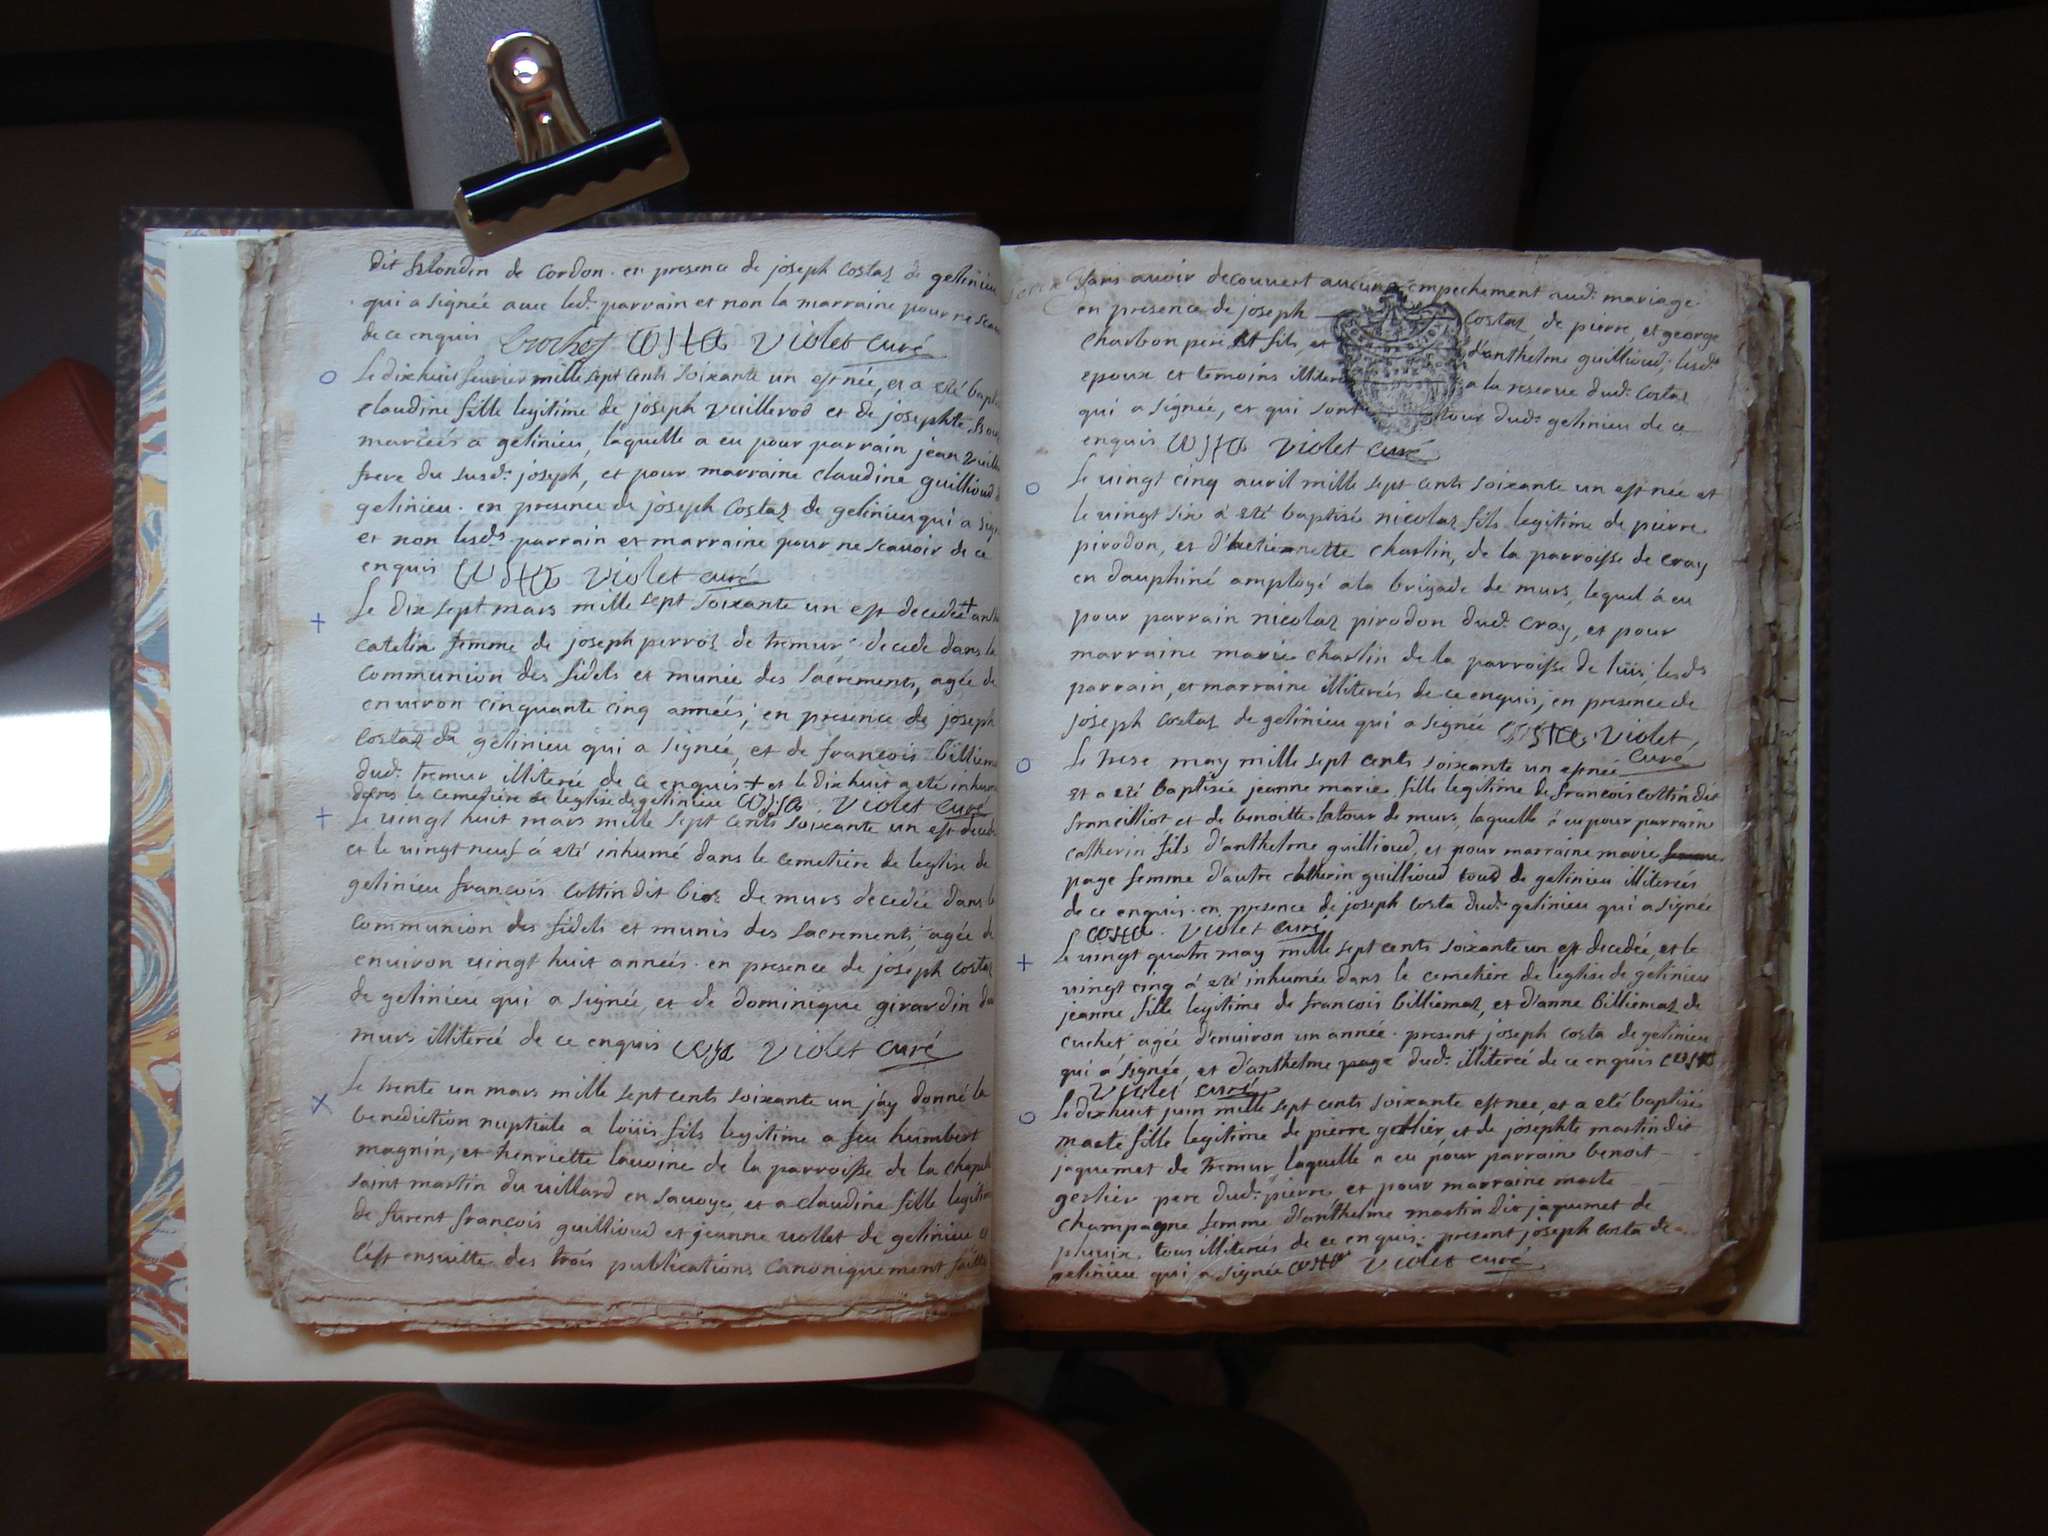 dit blondin de cordon. en presence de joseph costaz de gelinieu
qui a signée avec led. parrain et non la marraine pour ne scau
de ce enquis Crochet Costa Violet curé
Le dixhuit fevrier mille sept cents soixante un est née, et a eté bapt
claudine fille legitime de joseph vuillerod et de josephte
mariées a gelinieu, laquelle a eu pour parrain jean vuill
frere du susd. joseph, et pour marraine claudine guillioud d
gelinieu. en presence de joseph Costaz de gelinieu qui a sign
et non lesds parrain et marraine pour ne scavoir de ce
enquis Costa Violet curé
Le dix sept mars mille sept soixante un est decedée + anth
catelin femme de joseph perroz de tremur decede dans la
communion des fidels et munie des sacrements, agée de
environ cinquante cinq années; en presence de joseph
costaz de gelinieu qui a signée, et de francois billiem
dud. tremur illiteré de ce enquis + et le dixhuit a eté inhum
dans le cemetière de leglise de gelinieu Costa Violet curé
Le vingt huit mars mille sept cents soixante un est decede
et le vingt neuf à eté inhumé dans le cemetière de leglise de
gelinieu francois cottin dit de murs decedée dans la
communion des fidels et munis des sacrements, agée de
environ vingt huit années. en presence de joseph costaz
de gelinieu qui a signée et de dominique girardin du
murs illiteré de ce enquis Costa Violet curé
Le trente un mars mille sept cents soixante un jay donné la
benediction nuptiale a loüis fils legitime a feu humbert
magnin, et henriette lavoine de la parroisse de la chapel
saint martin du villard en savoye, et a claudine fille legitim
de furent francois guillioud et jeanne vollet de gelinieu
c'est ensuitte des trois publications canoniquement faittes
sans avoir decouvert aucune empechement aud. mariage.
en presence de joseph costaz de pierre, et george
charbon pere et fils, et d'anthelme guillioud; lesd.
epoux et temoins illiterés a la reserve dud. costaz
qui a signée, et qui sont tour dud. gelinieu de ce
enquis Costa Violet curé
Le vingt cinq avril mille sept cents soixante un est née et
le vingt six à eté baptisé nicolaz fils legitime de pierre
pirodon, et d' charlin, de la parroisse de cray
en dauphiné amployé a la brigade de murs, lequel à eu
pour parrain nicolaz pirodon dud. cray, et pour
marraine marie charlin de la parroisse de lüis, lesds
parrain, et marraine illiterés de ce enquis, en presence de
joseph costaz de gelinieu qui a signée Costa Violet
curé
Le trese may mille sept cents soixante un est née
et a eté baptisée jeanne marie fille legitime de francois cottin dit
francilliot et de benoitte latour de murs, laquelle à eu pour parrain
catherin fils d'anthelme guillioud, et pour marraine marie femme
page femme d'autre catherin guillioud tous de gelinieu illiterés
de ce enquis. en presence de joseph costa dud. gelinieu qui a signée
Costa Violet curé
Le vingt quatre may mille sept cents soixante un est decedée, et le
vingt cinq à eté inhumée dans le cemetière de leglise de gelinieu
jeanne fille legitime de francois billiemaz, et d'anne billiemaz de
cuchet agée d'environ un année. present joseph costa de gelinieu
qui à signée, et d'anthelme page dud. illiteré de ce enquis Costa
Violet curé
Le dixhuit juin mille sept cents soixante est nee, et a eté baptisée
marte fille legitime de pierre gerlier, et de josephte martin dit
jaquemet de tremur, laquelle a eu pour parrain benoit
gerlier pere dud. pierre, et pour marraine marte
champagne femme d'anthelme martin dit jaquemet de
tous illiterés de ce enquis. present joseph costa de
gelinieu qui a signée Costa Violet curé